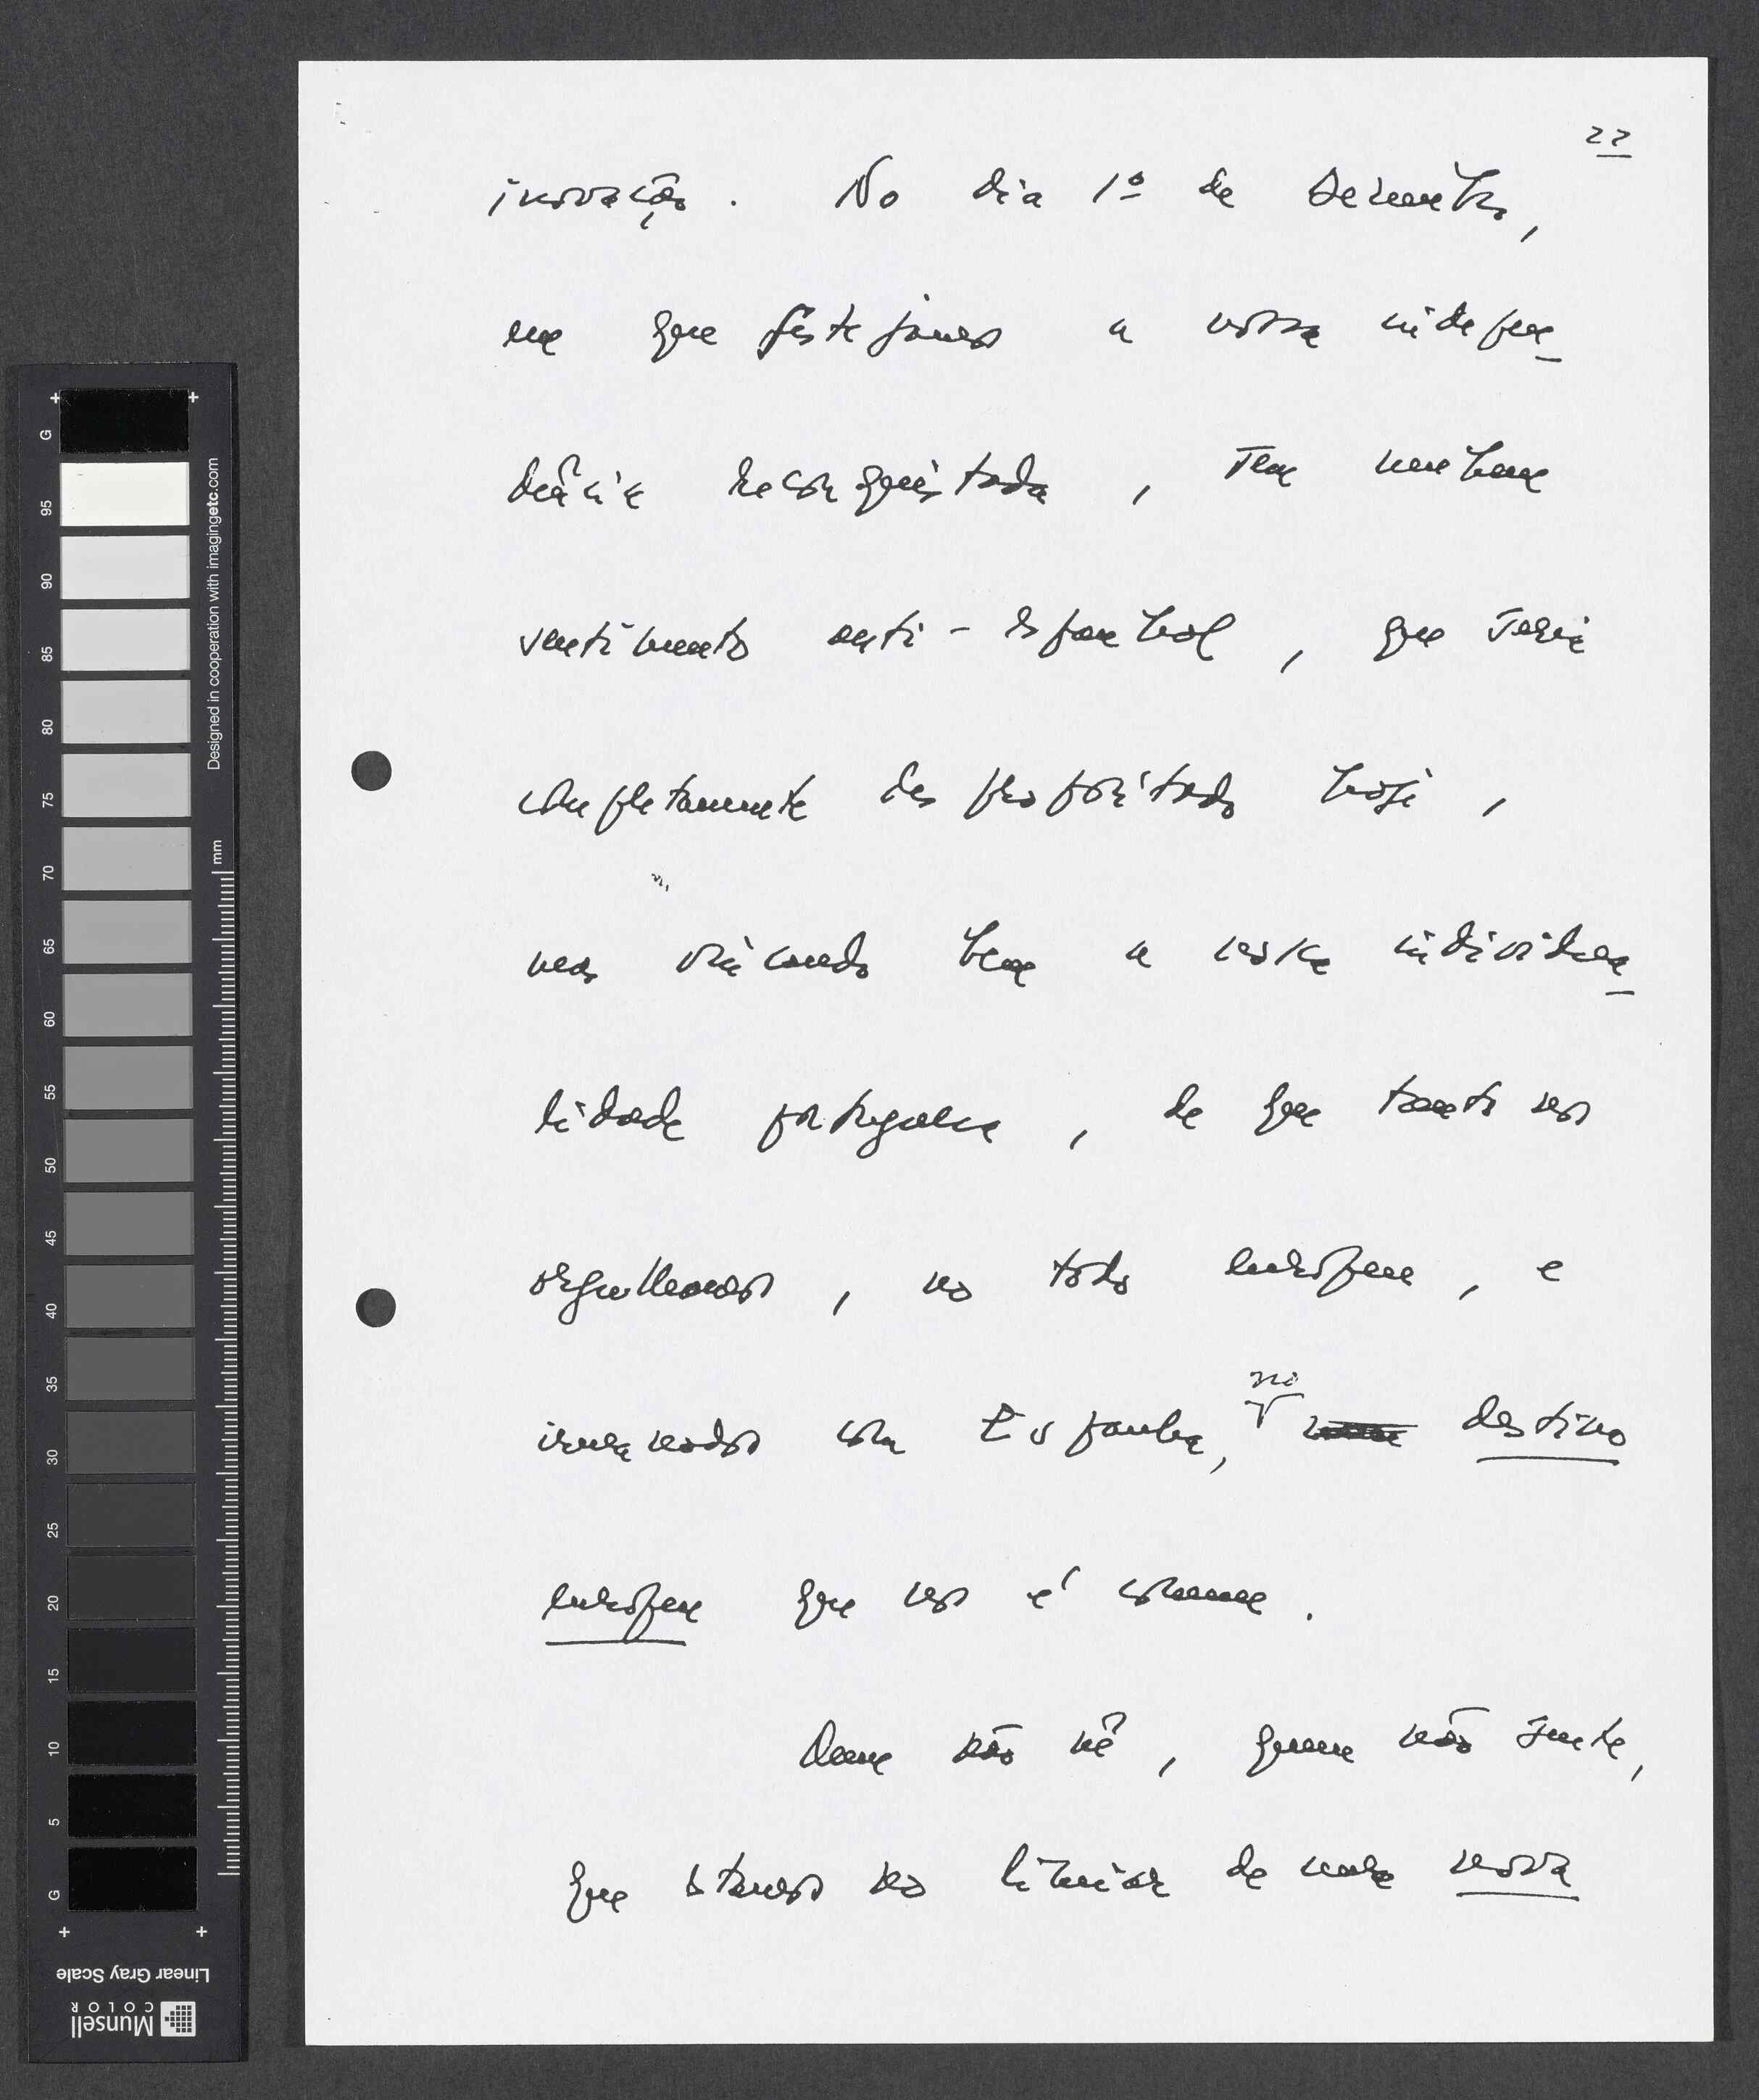 22
inovação. No dia 1º de Dezembro,
em que festejamos a nossa indepen_
dência reconquistada, sem nenhum
sentimento anti-espanhol, que seria
completamente despropositado hoje,
mas vincando bem a nossa individua_
lidade portuguesa, de que tanto nos
orgulhamos, no todo europeu, e
irmanados com Espanha, no destino
europeu que nos é comum.
Quem não vê, quem não sente,
que estamos no limiar de uma nova
G 95 90 85 80 75 70 65 60 55 50 45 40 35 30 25 20 15 10 5 G
Designed in cooperation with imagingetc.com
mm
Linear Gray Scale
Munsell
COLOR